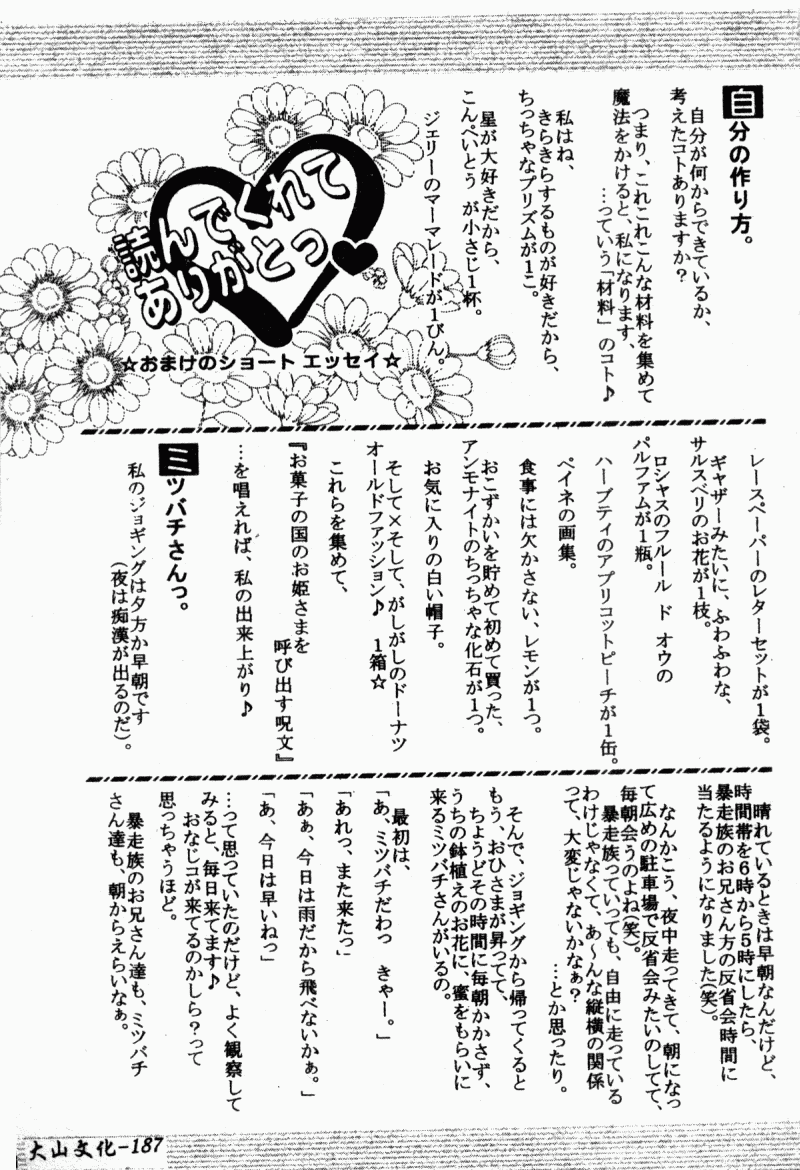 読んでくれて
ありがとっ
☆おまけのショート エッセイ☆
自分の作り方。
自分が何からできているか、
考えたコトありますか?
つまり、これこれこんな材料を集めて
魔法をかけると、私になります、
…っていう「材料」のコト♪
私はね、
きらきらするものが好きだから、
ちっちゃなプリズムが1こ。
星が大好きだから、
こんぺいとう が小さじ1杯。
ジェリーのマーマレードが1びん。
レースペーパーのレターセットが1袋。
ギャザーみたいに、ふわふわな、
サルスベリのお花が1枝。
ロシャスのフルール ド オウの
パルファムが1瓶。
ハーブティのアプリコットピーチが1缶。
ペイネの画集。
食事には欠かさない、レモンが1つ。
おこずかいを貯めて初めて買った、
アンモナイトのちっちゃな化石が1つ。
お気に入りの白い帽子。
そして×そして、がしがしのドーナツ
オールドファッション♪ 1箱☆
これらを集めて、
『お菓子の国のお姫さまを
呼び出す呪文』
…を唱えれば、私の出来上がり♪
ミツバチさんっ。
私のジョギングは夕方か早朝です
(夜は痴漢が出るのだ)。
晴れているときは早朝なんだけど、
時間帯を6時から5時にしたら、
暴走族のお兄さん方の反省会時間に
当たるようになりました(笑)。
なんかこう、夜中走ってきて、朝になっ
て広めの駐車場で反省会みたいのしてて、
毎朝会うのよね(笑)。
暴走族っていっても、自由に走っている
わけじゃなくて、あ〜んな縦横の関係
って、大変じゃないかなぁ?
…とか思ったり。
そんで、ジョギングから帰ってくると
もう、おひさまが昇ってて、
ちょうどその時間に毎朝かかさず、
うちの鉢植えのお花に、蜜をもらいに
来るミツバチさんがいるの。
最初は、
「あ、ミツバチだわっ きゃー。」
「あれっ、また来たっ」
「あぁ、今日は雨だから飛べないかぁ。」
「あ、今日は早いねっ」
…って思っていたのだけど、よく観察して
みると、毎日来てます♪
おなじコが来てるのかしら?って
思っちゃうほど。
暴走族のお兄さん達も、ミツバチ
さん達も、朝からえらいなぁ。
大山文化-187